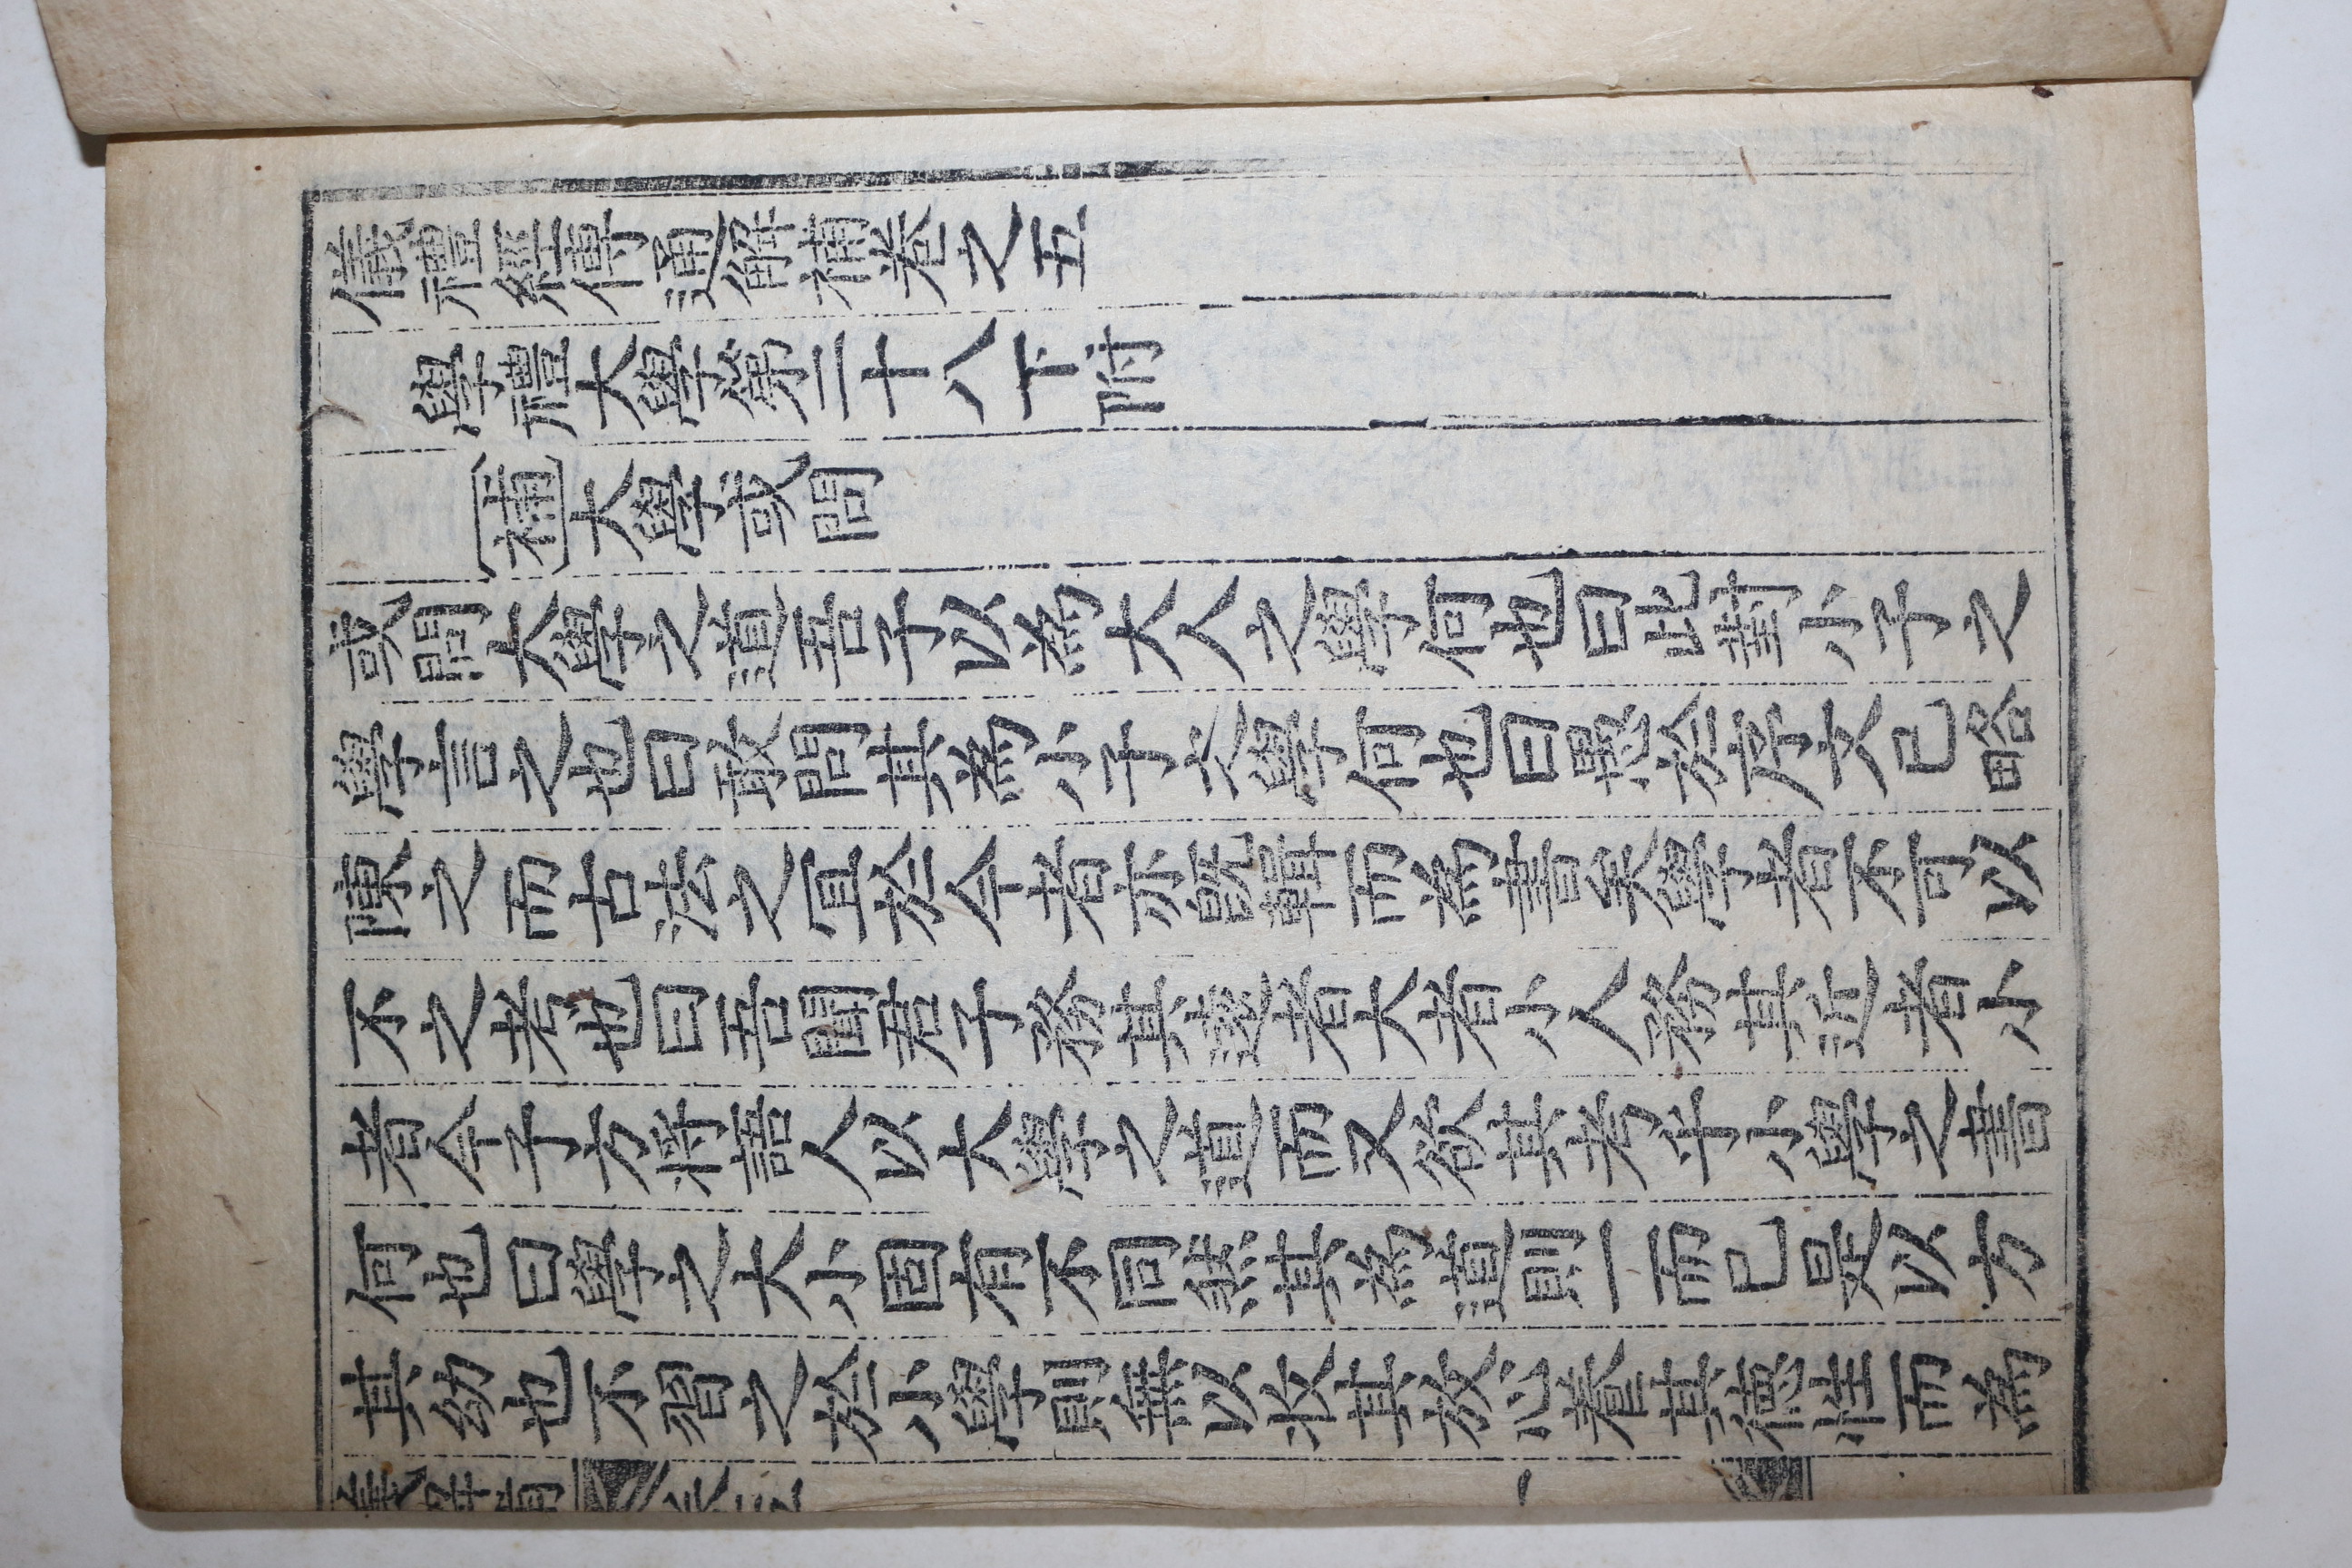 儀禮經傳通解補卷之五
學禮大學第二十八下附
補大學或問
或問大學之道吾子以為大人之學何也曰此對小子之
學言之也曰敢問其為小子之學何也曰愚於序文已略
陳之而古法之冝於今者亦旣輯而為書矣學者不可以
不之考也曰吾聞君子務其遠者大者小人務其近者小
者今子方將語人以大學之道而又欲其考乎小學之書
何也曰學之大小固有不同然其為道則一而已是以方
其幼也不習之於小學則無以收其放心養其德性而為
儀解補 卷之五 一